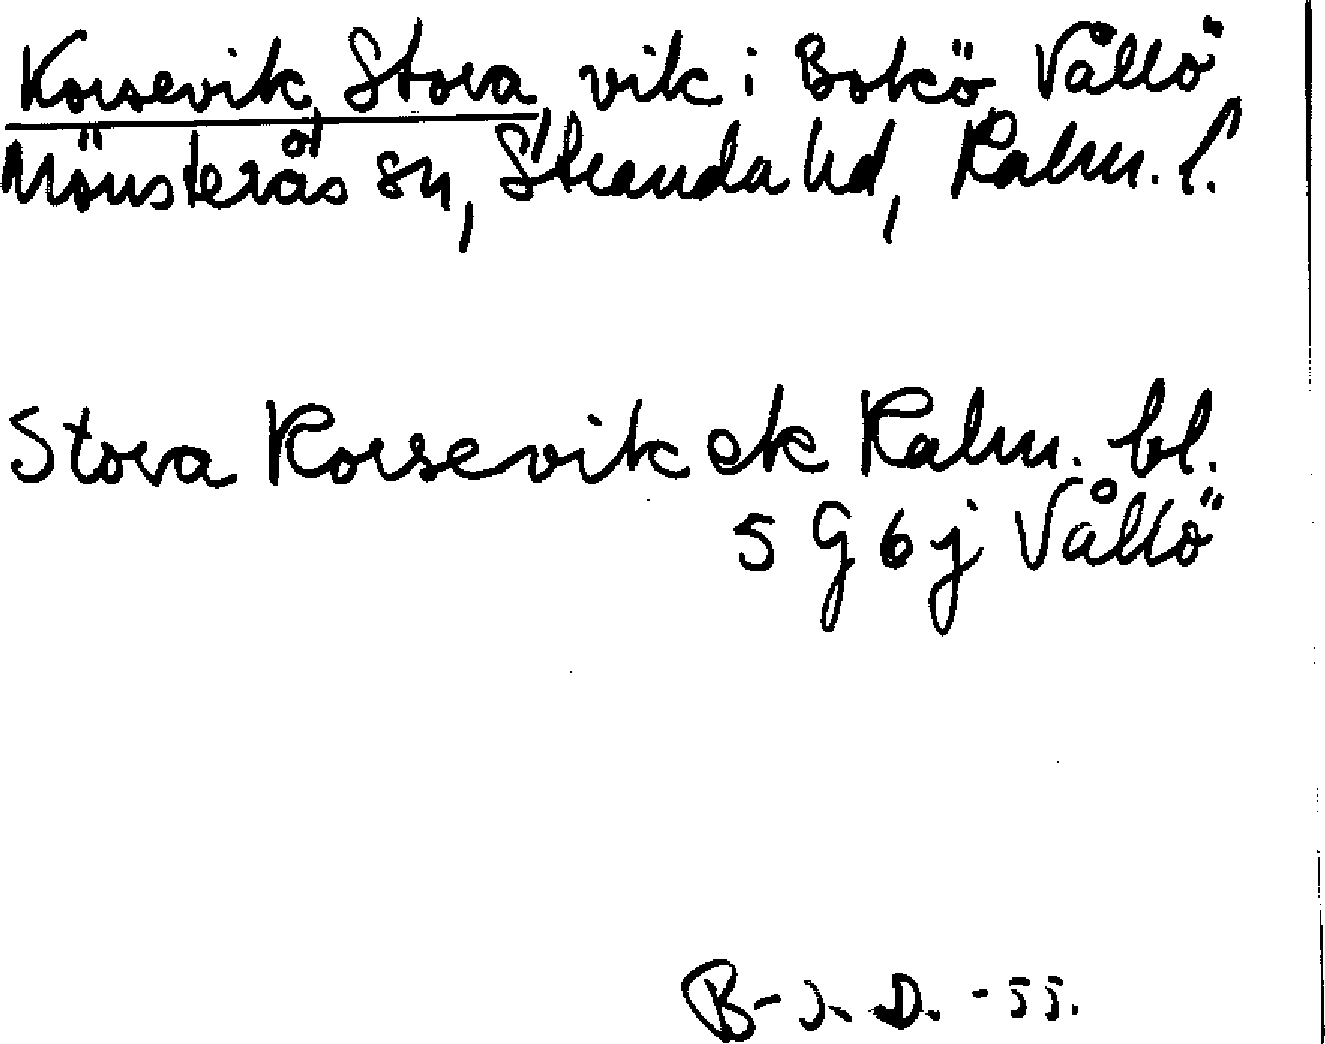 Korsevik, Stora, vik i Bokö, Vållö
Mönsterås sn, Stranda hd, Kalm. l.
Stora Korsevik ek Kalm. bl.
5 G 6 j Vållö
B-J. D. -55.